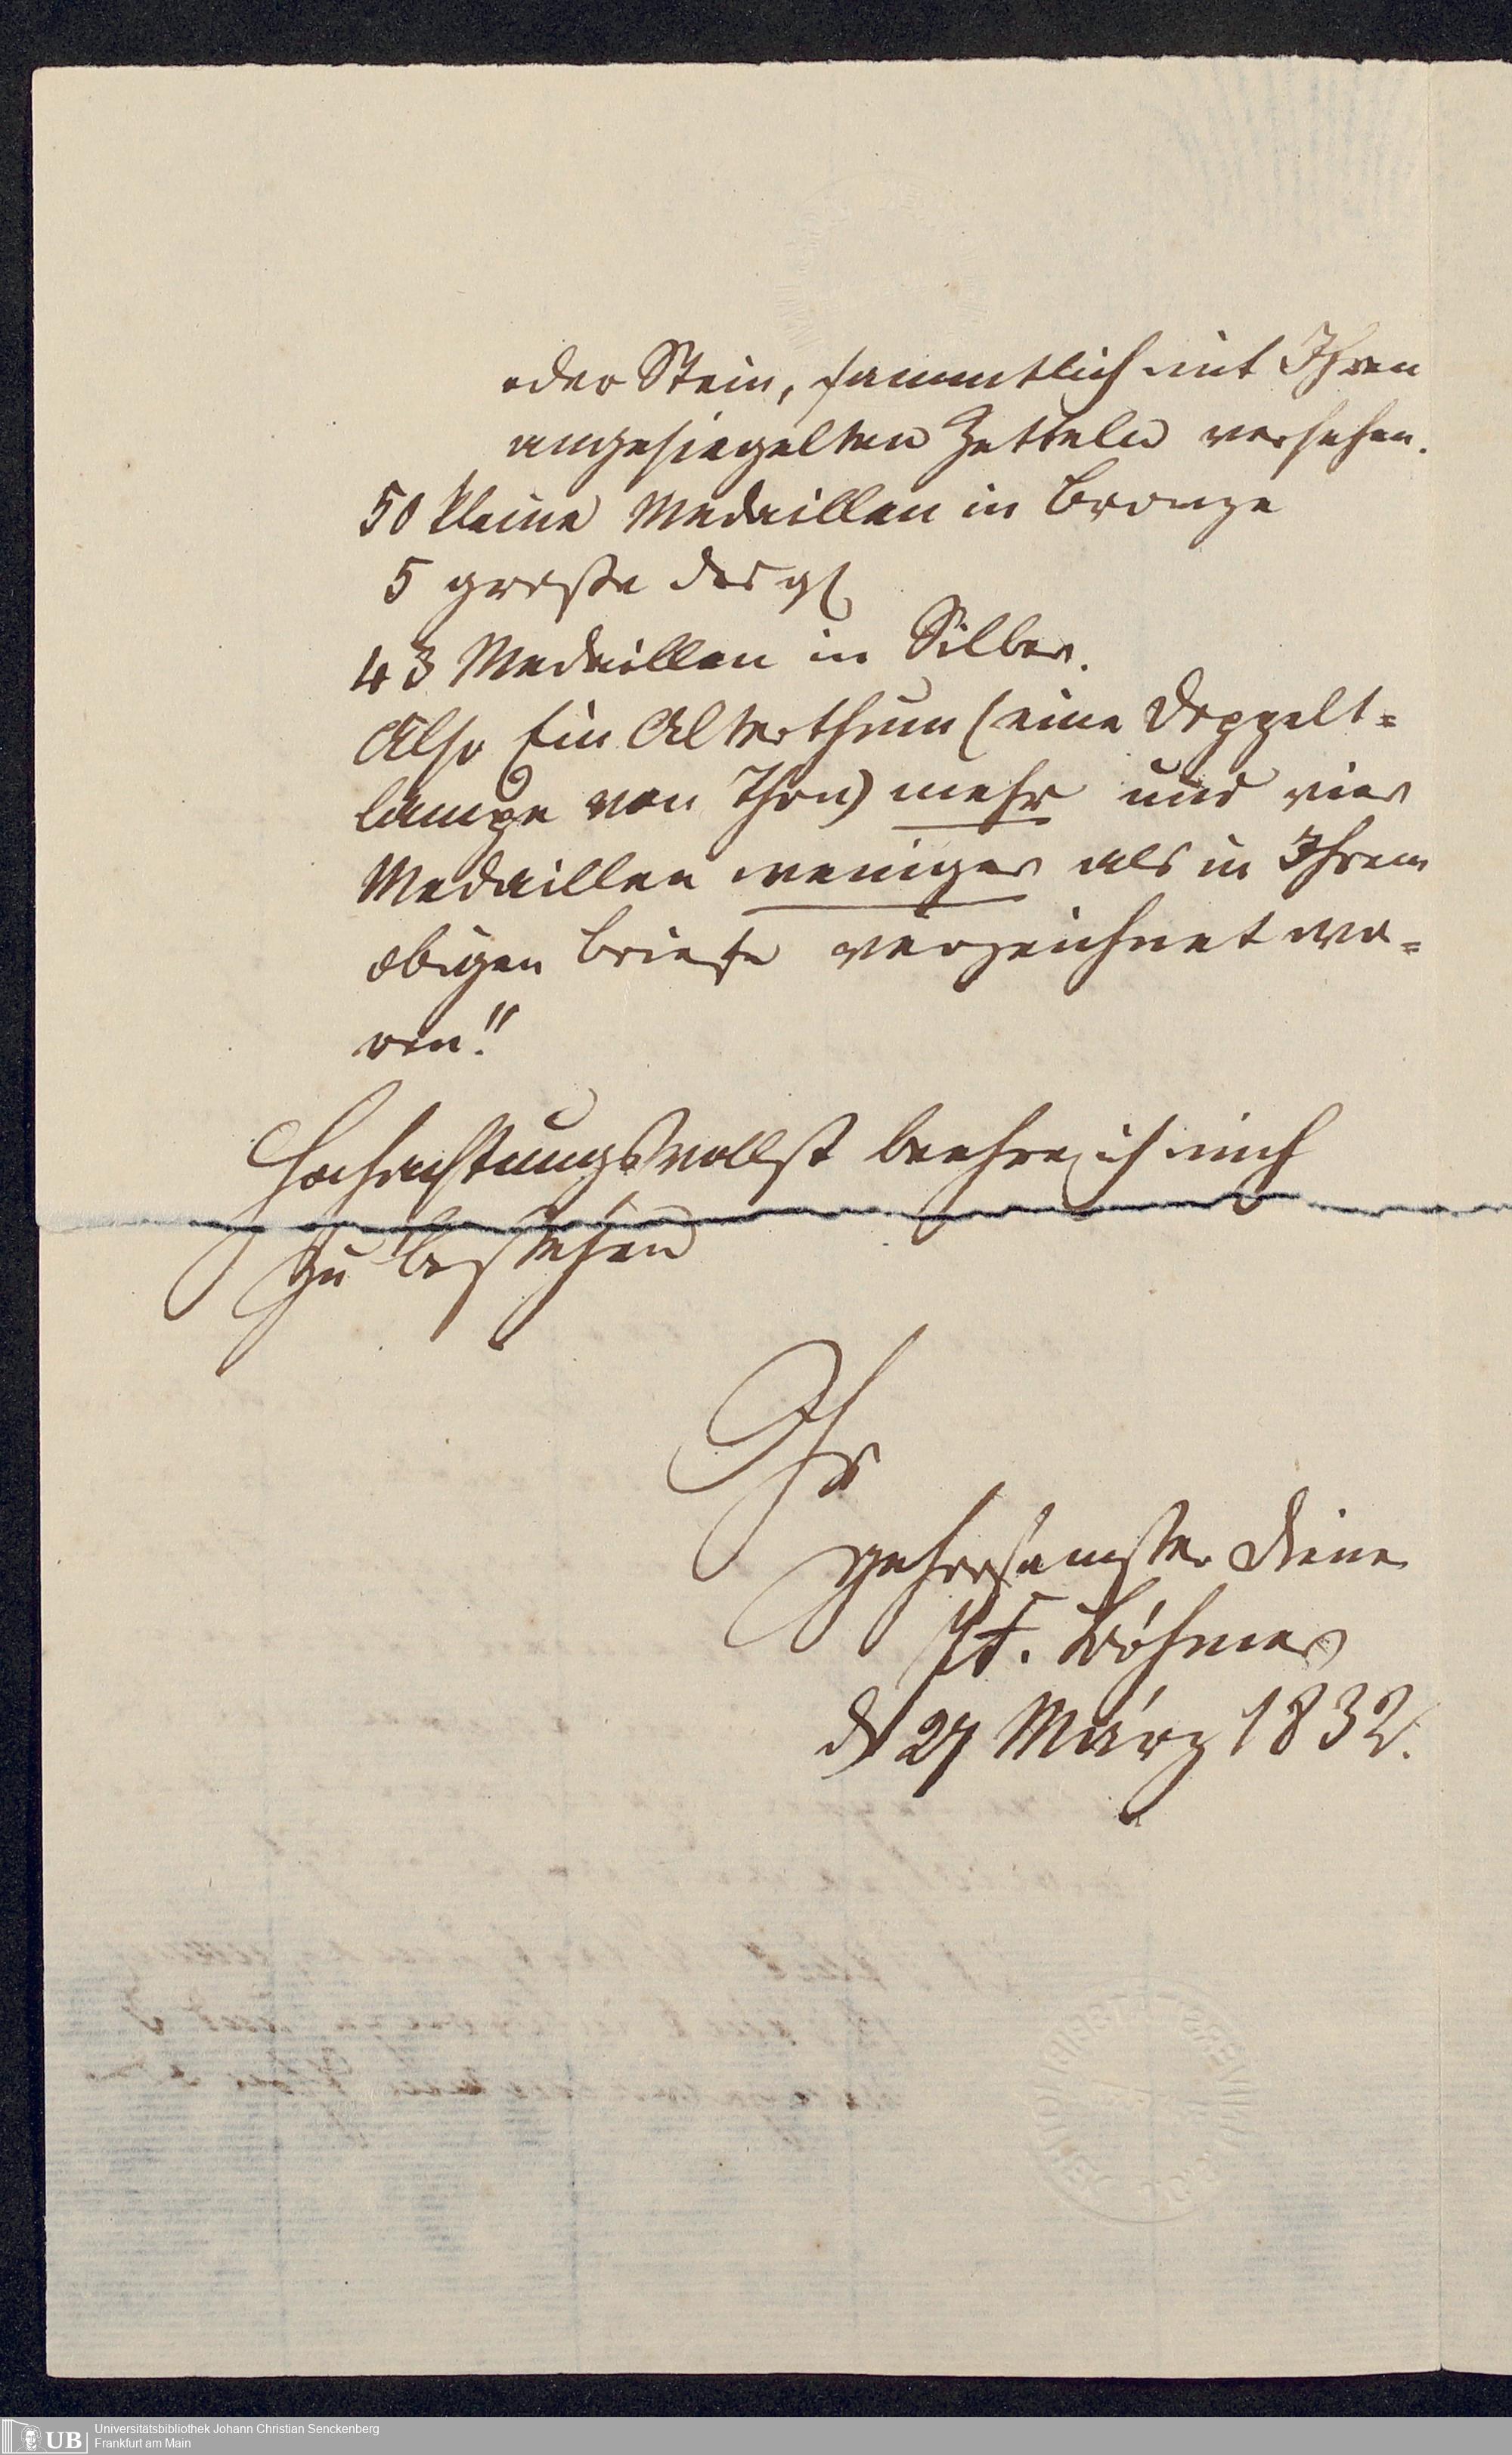 oder Stein, sammtlich mit Ihren
angesiegelten Zetteln versehen.
50 kleine Medaillen in Bronze
5 große desgl
43 Medaillen in Silber.
Also Ein Alterthum (eine Doppelt=
lampe von Thon) mehr und vier
Medaillen weniger als in Ihrem
obigen Briefe verzeichnet wa=
ren!!
Hochachtungsvollst beehre ich mich
zu bestehen
Ihr
gehorsamster Diener
JF. Böhmer
d 27 März 1832.
UB
Universitätsbibliothek Johann Christian Senckenberg
Frankfurt am Main